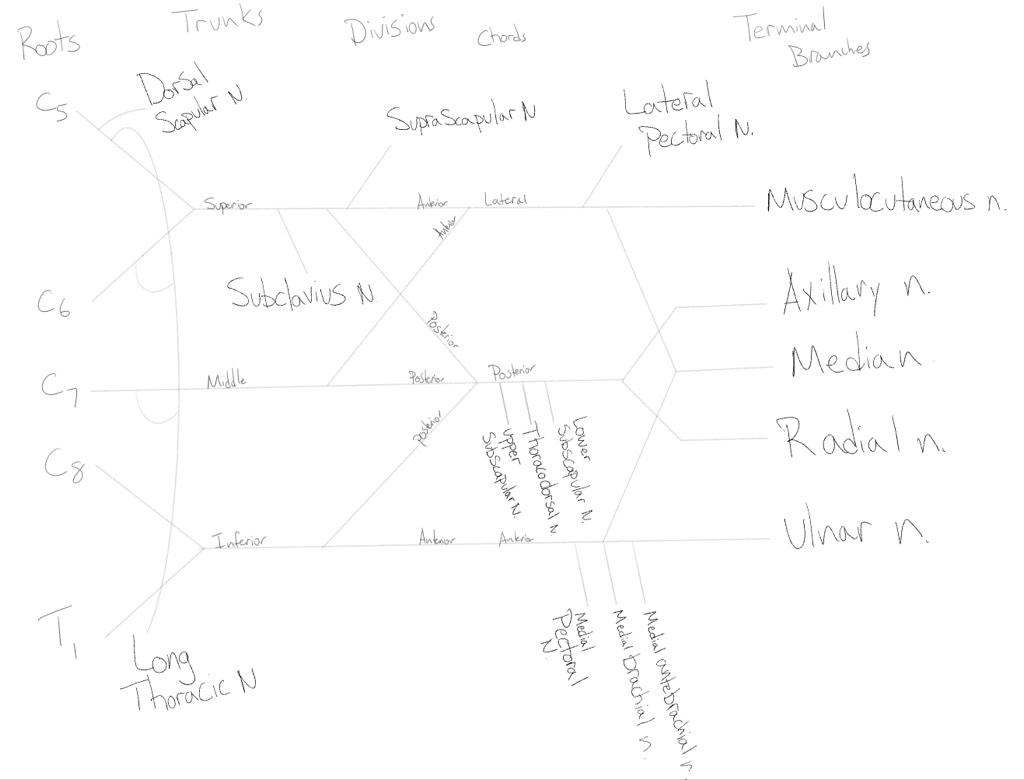 Roots
Trunks
Divisions
Chords
Terminal
Branches
C5
Dorsal
Scapular N.
SupraScapular N
Lateral
Pectoral N.
Superior
Anterior
Lateral
Musculocutaneous n.
Anterior
C6
Subclavius N
Axillary n.
Posterior
C7
Middle
Posterior
Posterior
Median
Posterior
Upper
Subscapular N.
Thoracodorsal N.
Lower
Subscapular N.
C8
Radial n.
Inferior
Anterior
Anterior
Ulnar n.
T1
Long
Thoracic N
Medial
Pectoral
N.
Medial brachial n.
Medial antebrachial n.